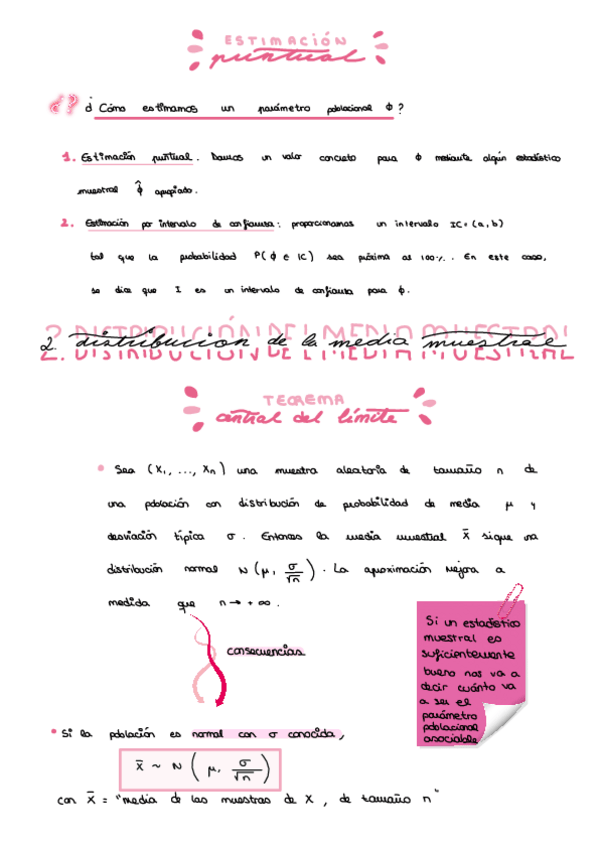 ESTIMACIÓN
puntual
¿? ¿Cómo estimamos un parámetro poblacional Φ?
1. Estimación puntual. Damos un valor concreto para Φ mediante algún estadístico
muestral Φ̂ apropiado.
2. Estimación por intervalo de confianza: proporcionamos un intervalo IC=(a,b)
tal que la probabilidad P(Φ ∈ IC) sea próxima al 100%. En este caso,
se dice que I es un intervalo de confianza para Φ.
2. DISTRIBUCIÓN DE LA MEDIA MUESTRAL
2. distribucion de la media muestral
TEOREMA
central del límite
Sea (X₁, ..., Xn) una muestra aleatoria de tamaño n de
una población con distribución de probabilidad de media μ y
desviación típica σ. Entonces la media muestral X̄ sigue una
distribución normal N(μ, σ/√n). La aproximación mejora a
medida que n→+∞.
consecuencias
Si un estadístico
muestral es
suficientemente
bueno nos va a
decir cuánto va
a ser el
parámetro
poblacional
asociable
• Si la población es normal con σ conocida,
X̄ ~ N(μ, σ/√n)
con X̄ = "media de las muestras de X, de tamaño n"